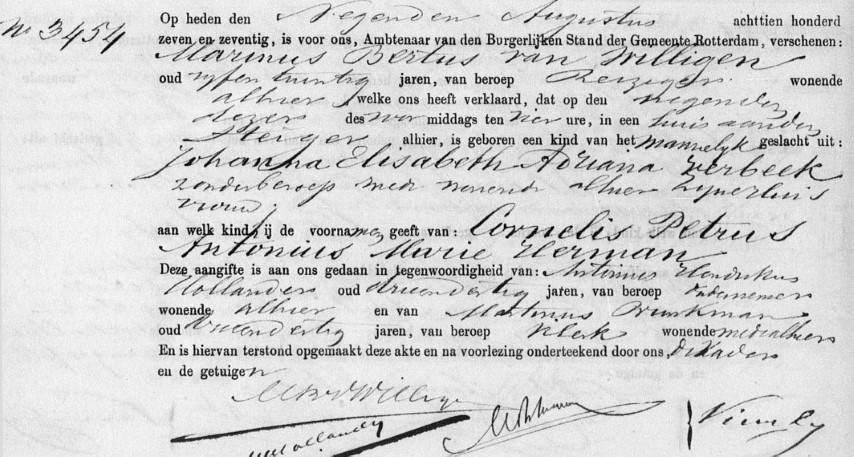 No 3454
Op heden den Negenden Augustus achttien honderd
zeven en zeventig, is voor ons, Ambtenaar van den Burgerlijken Stand der Gemeente Rotterdam, verschenen:
Marinus Bertus van Willigen
oud vyfentwintig jaren, van beroep Reiziger wonende
alhier welke ons heeft verklaard, dat op den negenden
dezer des voor middags ten vier ure, in een huis aanden
Steiger alhier, is geboren een kind van het mannelyk geslacht uit:
Johanna Elisabeth Adriana Verbeek
zonder beroep mede wonende alhier zyner huis
vrouw;
aan welk kind hij de voornamen geeft van: Cornelis Petrus
Antonius Marie Herman
Deze aangifte is aan ons gedaan in tegenwoordigheid van: Antonius Hendrikus
Hollanders oud drieendertig jaren, van beroep ondernemer
wonende alhier en van Martinus Brinkman
oud drieendertig jaren, van beroep klerk wonende mede alhier
En is hiervan terstond opgemaakt deze akte en na voorlezing onderteekend door ons, de Vader
en de getuigen